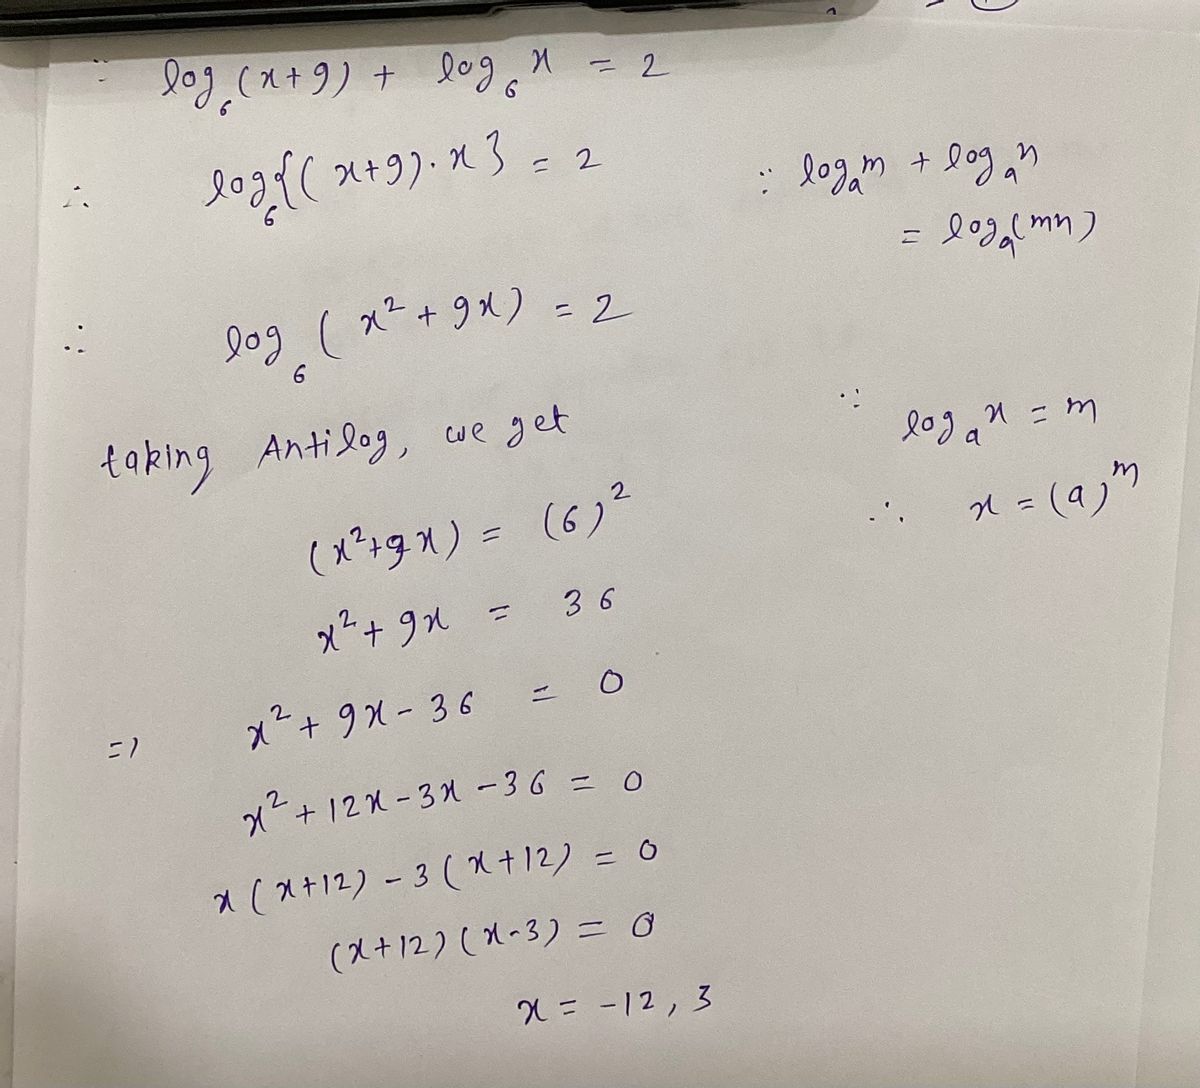 ∵ log₆(x+9) + log₆x = 2
∴ log₆{(x+9)·x} = 2
∵ logₐm + logₐn
= logₐ(mn)
∴ log₆(x²+9x) = 2
taking Antilog, we get
∵ logₐx = m
∴ x = (a)ᵐ
(x²+9x) = (6)²
x²+9x = 36
=> x²+9x-36 = 0
x²+12x-3x-36 = 0
x(x+12)-3(x+12) = 0
(x+12)(x-3) = 0
x = -12, 3